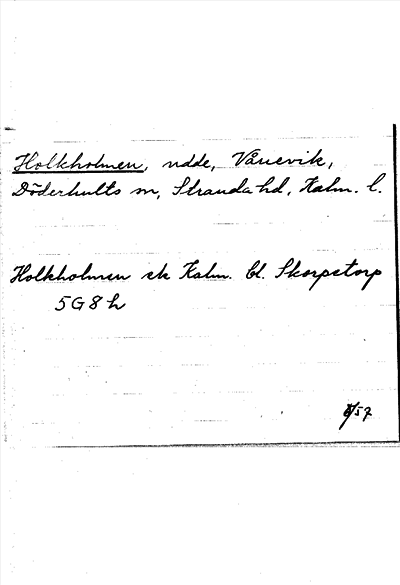 Holkholmen, udde, Vånevik,
Döderhults sn, Stranda hd, Kalm. l.
Holkholmen ek Kalm. bl. Skorpetorp
5G8h
/57